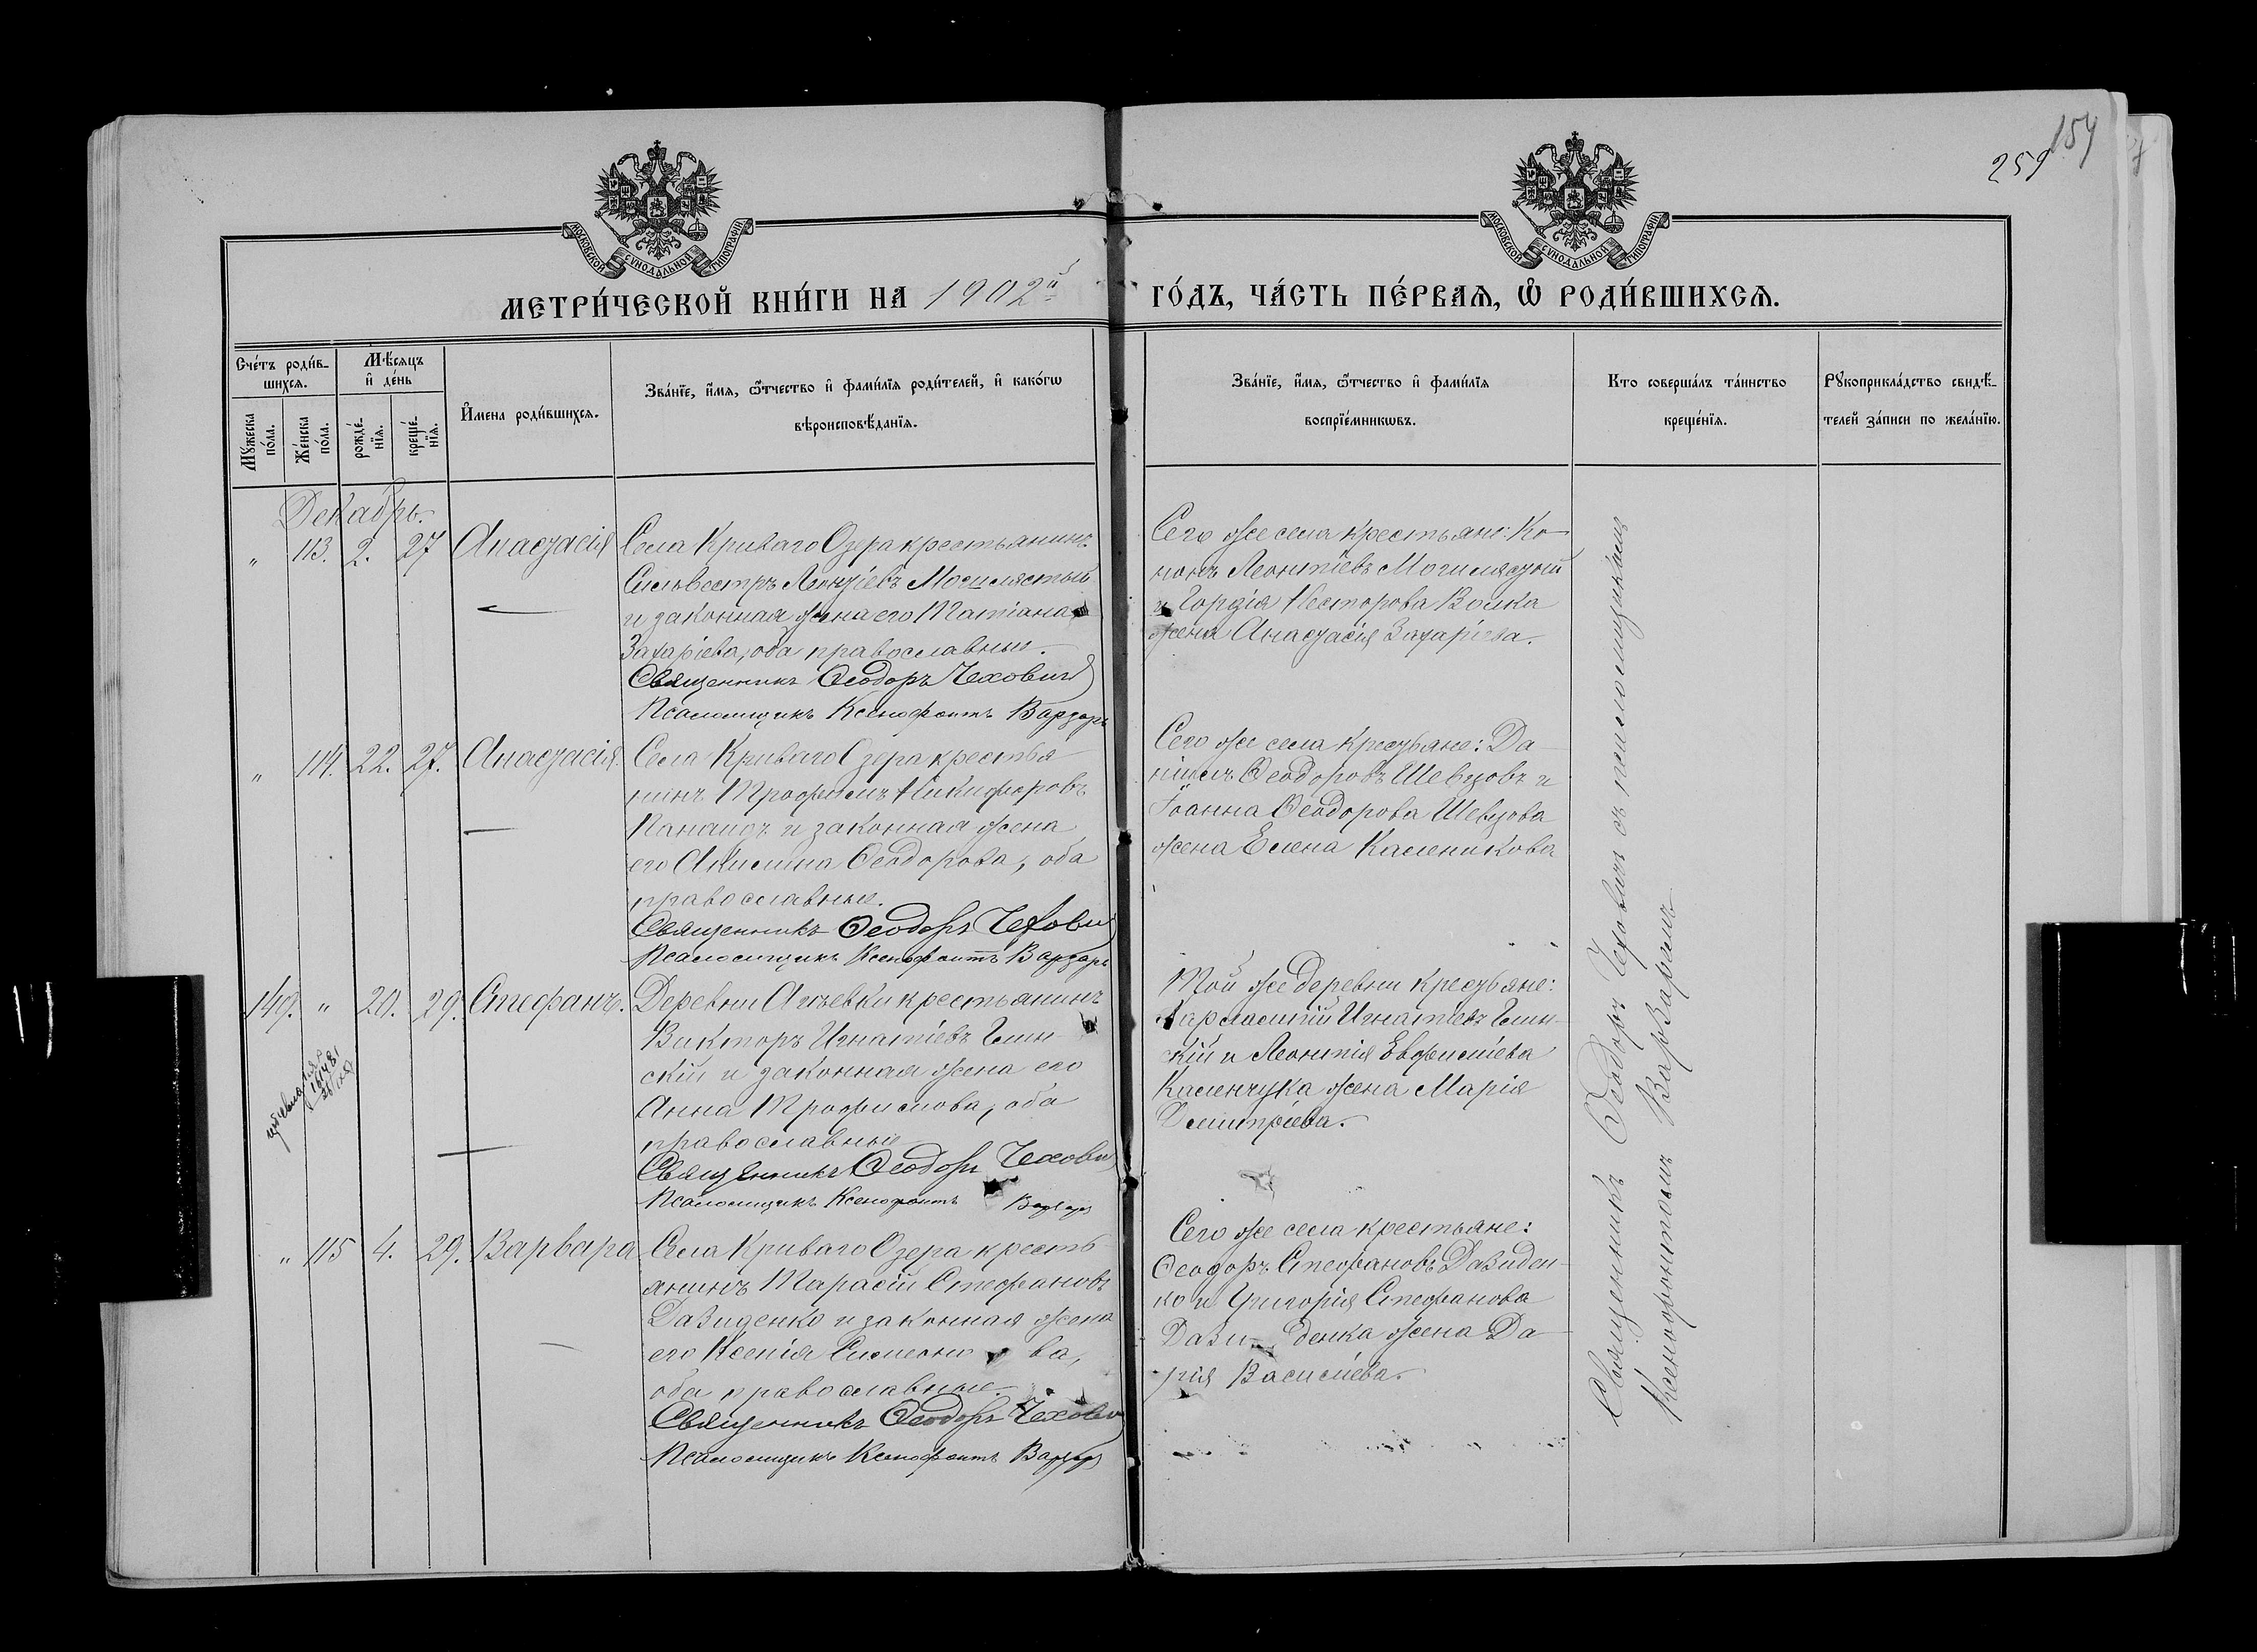 154
259
МОСКОВСКОЙ СѴНОДАЛЬНОЙ ТИПОГРАФІИ
МОСКОВСКОЙ СѴНОДАЛЬНОЙ ТИПОГРАФІИ
МЕТРИ́ЧЕСКОЙ КНИ́ГИ НА 1902й ГО́ДЪ, ЧА́СТЬ ПЕ́РВАѦ, Ѡ҆ РОДИ́ВШИХСѦ.
Сче́тъ роди́в-
шихсѧ.
Мѣ́сѧцъ
и҆ де́нь
Мꙋ́жеска
по́ла.
Же́нска
по́ла.
рожде́-
нїѧ.
креще́-
нїѧ.
И҆мена роди́вшихсѧ.
Зва́нїе, и҆́мѧ, ѻ҆́тчество и҆ фами́лїѧ роди́телей, и҆ како́гѡ
вѣроисповѣ́данїѧ.
Зва́нїе, и҆́мѧ, ѻ҆́тчество и҆ фами́лїѧ
воспрїе́мникѡвъ.
Кто соверша́лъ та́инство
креще́нїѧ.
Рꙋкоприкла́дство свидѣ́-
телей за́писи по жела́нїю.
Декабрь.
" 113. 2. 27 Анастасія
Села Криваго Озера крестьянинъ
Сильвестръ Леонтіевъ Могилястый
и законная жена его Татіана
Захаріева, оба православные.
Священникъ Ѳеодоръ Чеховичъ
Псаломщикъ Ксенофонтъ Варзарь
Сего же села крестьяне: Ко-
нонъ Леонтіевъ Могилястый
и Гордія Несторова Волка
жена Анастасія Захаріева.
" 114. 22. 27. Анастасія.
Села Криваго Озера крестья-
нинъ Трофимъ Никифоровъ
и законная жена
его Акилина Ѳеодорова, оба
православные.
Священникъ Ѳеодоръ Чехович
Псаломщикъ Ксенофонтъ Варзарь
Сего же села крестьяне: Да-
ніилъ Ѳеодоровъ Шевцовъ и
Іоанна Ѳеодорова Шевцова
жена Елена Каленикова
149. " 20. 29. Стефанъ.
16481
Деревни крестьянинъ
Викторъ Игнатіевъ
скій и законная жена его
Анна Трофимова, оба
православные
Священникъ Ѳеодоръ Чехович
Псаломщикъ Ксенофонтъ Варзарь
Той же деревни крестьяне:
Харлампій Игнатіевъ
скій и Леонтія Евфиміева
Каленчука жена Марія
Димитріева.
" 115 4. 29. Варвара
Села Криваго Озера кресть-
янинъ Тарасій Стефановъ
Давиденко и законная жена
его Ксенія Симеоно ва,
оба православные.
Священникъ Ѳеодоръ Чехович
Псаломщикъ Ксенофонтъ Варзарь
Сего же села крестьяне:
Ѳеодоръ Стефановъ Давиден-
ко и Григорія Стефанова
Дави- денка жена Да-
рія Василіева.
Священникъ Ѳеодоръ Чеховичъ съ псаломщикомъ
Ксенофонтомъ Варзаремъ